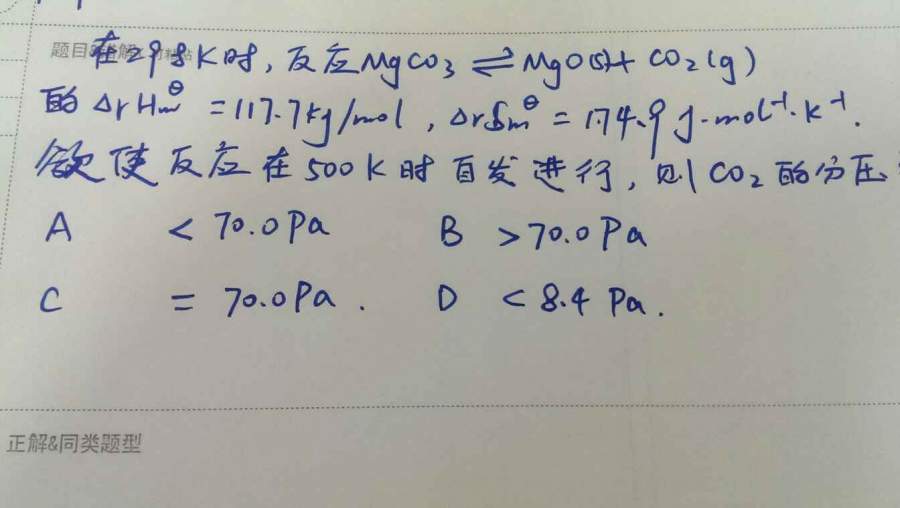 题目&错解
在298K时，反应MgCO3 ⇌ MgO(s)+ CO2(g)
的ΔrHm^θ = 117.7kJ/mol，ΔrSm^θ = 174.9 J·mol⁻¹·K⁻¹.
欲使反应在500K时自发进行，则CO2的分压
A < 70.0Pa B > 70.0Pa
C = 70.0Pa. D < 8.4 Pa.
正解&同类题型